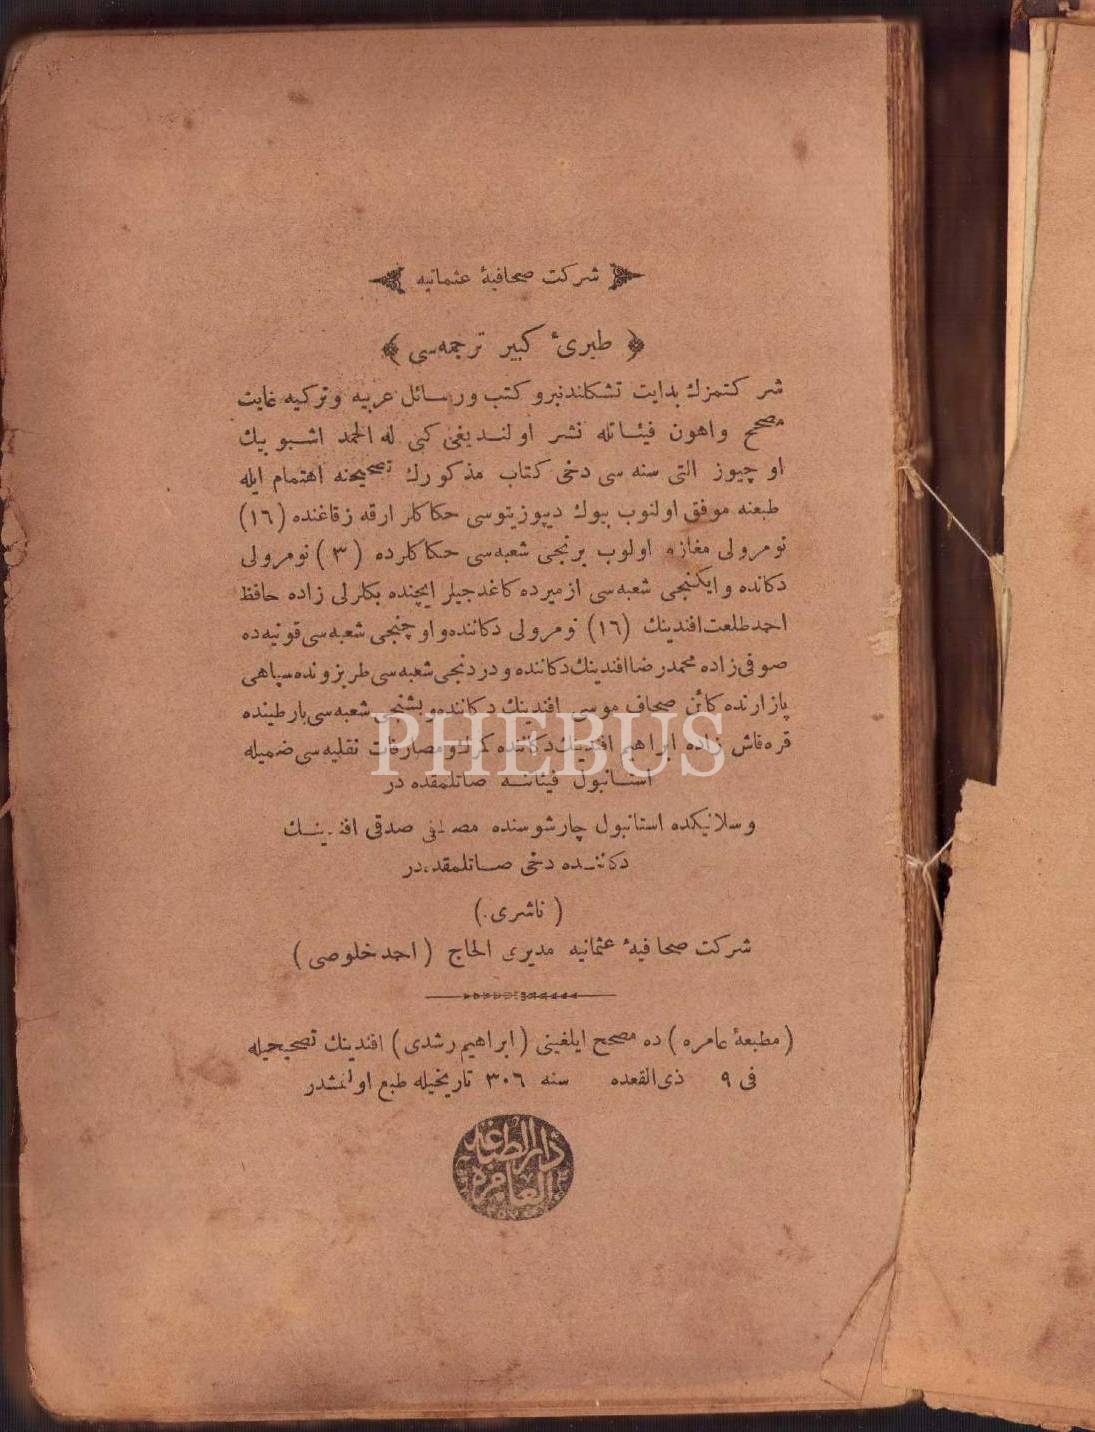 شركت صحافیهٔ عثمانیه
طبریٔ كبیر ترجمه‌سی
شركتمزك بدایت تشكلندنبرو كتب ورسائل عربیه وتركیه غایت
مصحح واهون فیئاتله نشر اولندیغی كبی له الحمد اشبو بیك
اوچیوز التی سنه سی دخی كتاب مذكورك تصحیحنه اهتمام ایله
طبعنه موفق اولنوب بیوك دیپوزیتوسی حكاكلر ارقه زقاغنده (١٦)
نومرولی مغازه اولوب برنجی شعبه‌سی حكاكلرده (٣) نومرولی
دكانده وایكنجی شعبه‌سی ازمیرده كاغدجیلر ایچنده بكلرلی زاده حافظ
احمد طلعت افندینك (١٦) نومرولی دكاننده واوچنجی شعبه‌سی قونیه‌ده
صوفی زاده محمد رضا افندینك دكاننده ودردنجی شعبه‌سی طربزونده سپاهی
پازارنده كائن صحاف موسی افندینك دكاننده وبشنجی شعبه‌سی بارطینده
قره‌فاش زاده ابراهیم افندینك دكاننده كمرك ومصارفات نقلیه‌سی ضمیله
استانبول فیئاتنه صاتلمقده در
وسلانیكده استانبول چارشوسنده مصطفی صدقی افندینك
دكاننده دخی صاتلمقده‌در
(ناشری)
شركت صحافیهٔ عثمانیه مدیری الحاج (احمد خلوصی)
(مطبعهٔ عامره) ده مصحح ایلغینی (ابراهیم رشدی) افندینك تصحیحیله
فی ٩ ذی القعده سنه ٣٠٦ تاریخیله طبع اولنمشدر
دار الطباعه
العامره
PHEBUS